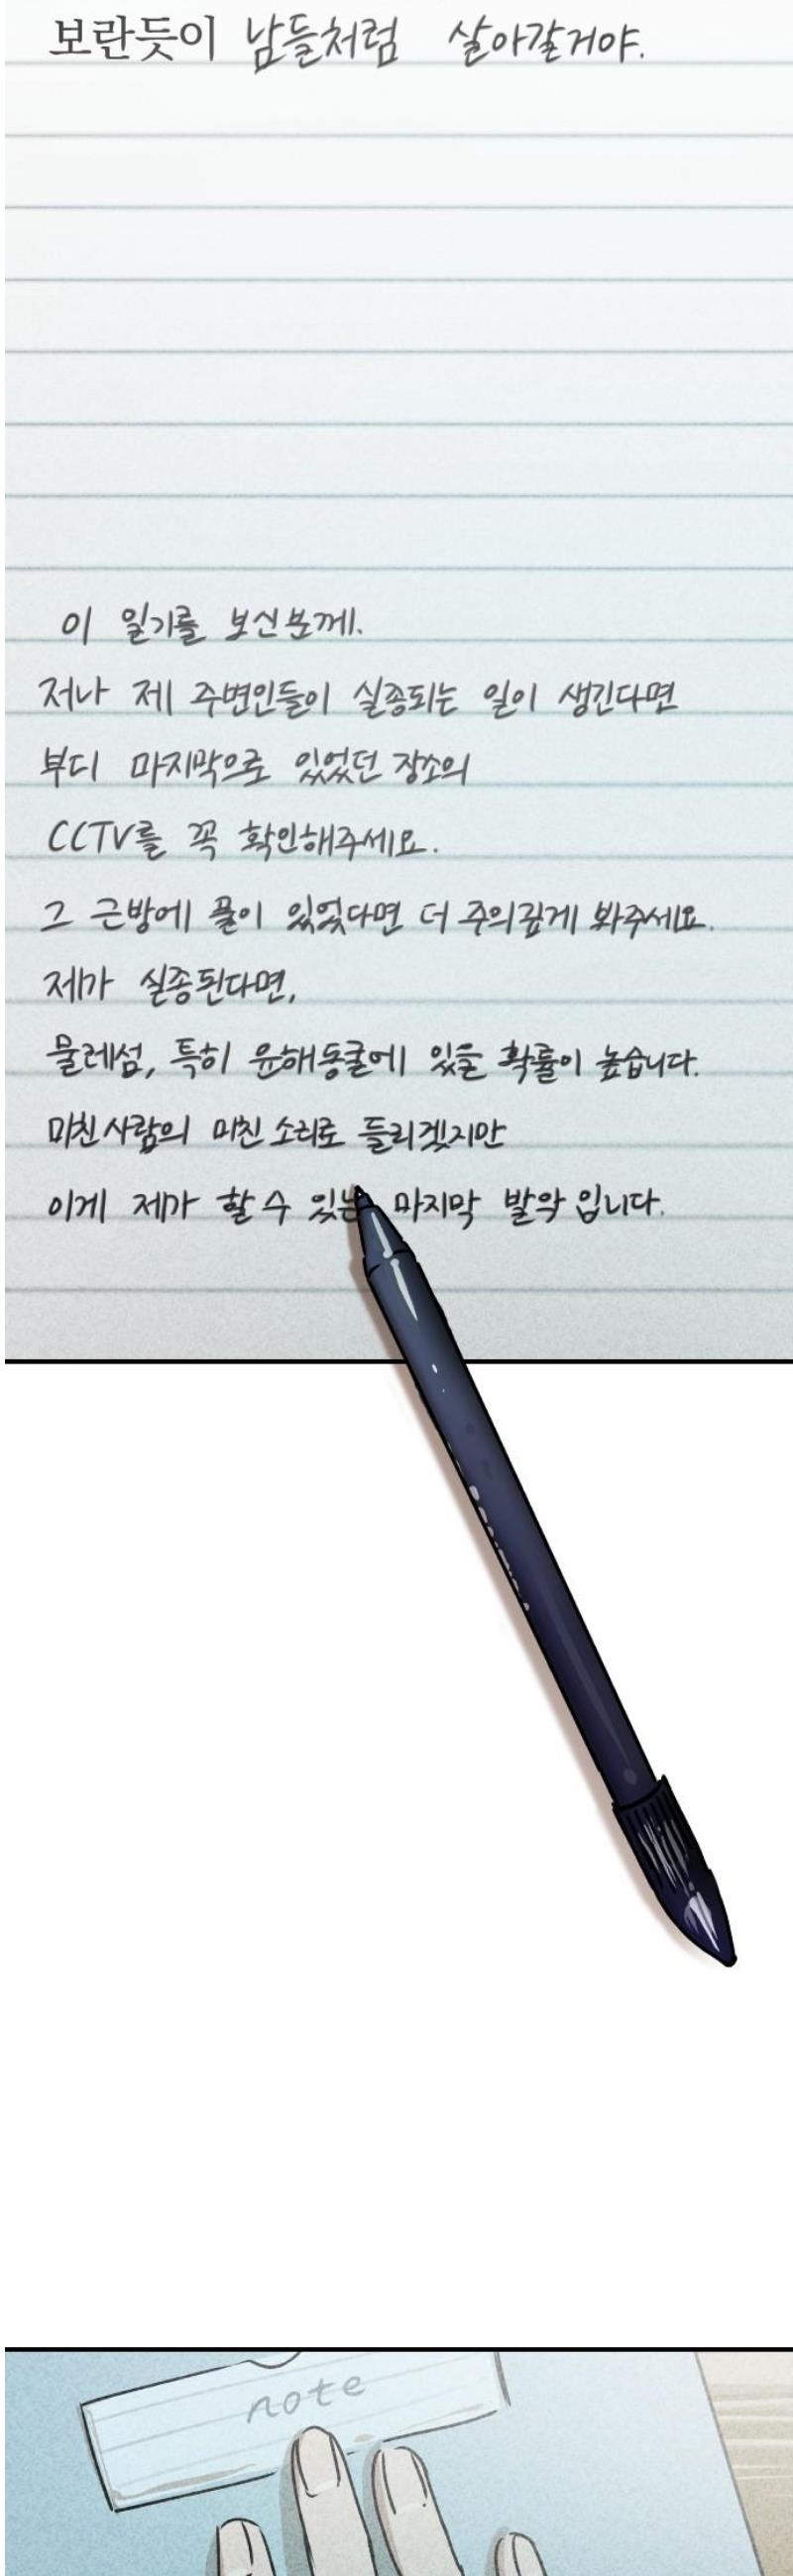 보란듯이 남들처럼 살아갈거야.
이 일기를 보신분께.
저나 제 주변인들이 실종되는 일이 생긴다면
부디 마지막으로 있었던 장소의
CCTV를 꼭 확인해주세요.
그 근방에 풀이 있었다면 더 주의깊게 봐주세요.
제가 실종된다면,
물레섬, 특히 윤해동굴에 있을 확률이 높습니다.
미친사람의 미친 소리로 들리겠지만
이게 제가 할 수 있는 마지막 발악 입니다.
note